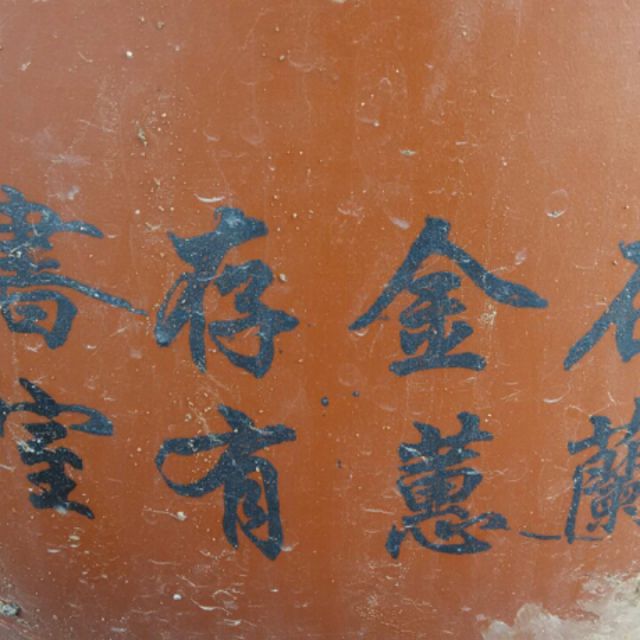 蘭
金蕙
存有
書室